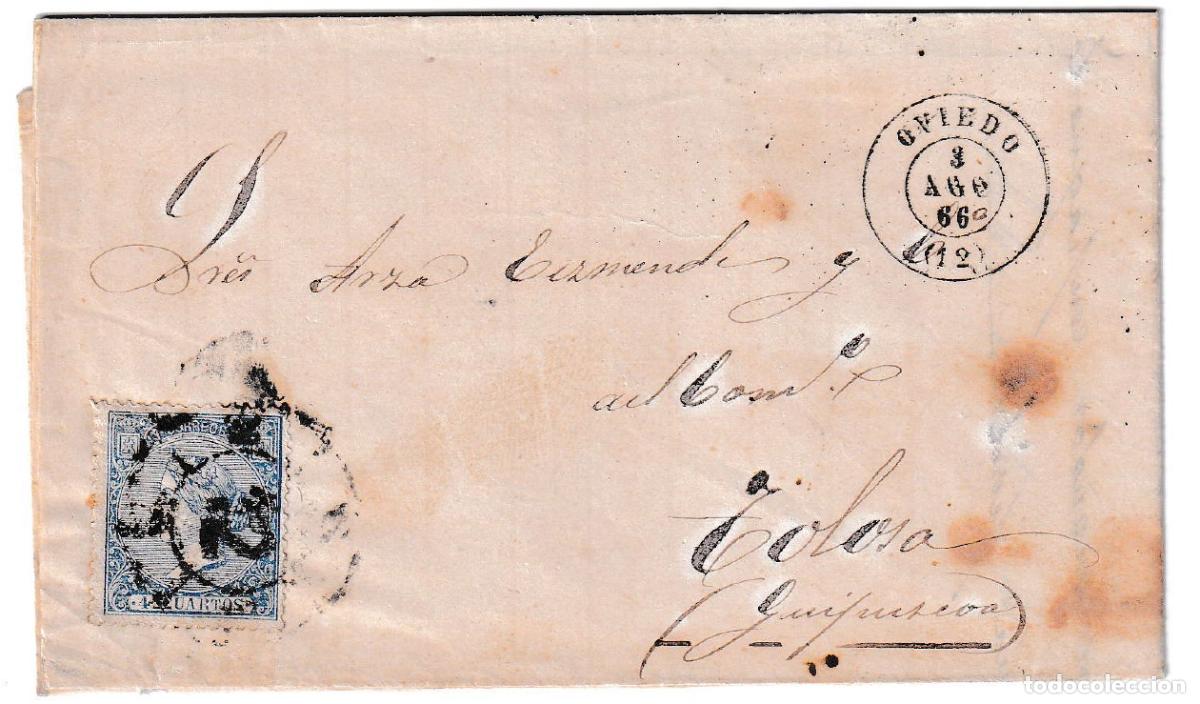 OVIEDO
3
AGO
66
(12)
Sres Arza Eizmendi y
del Com.º
Tolosa
Guipuzcoa
CORREOS
4 CUARTOS
todocoleccion